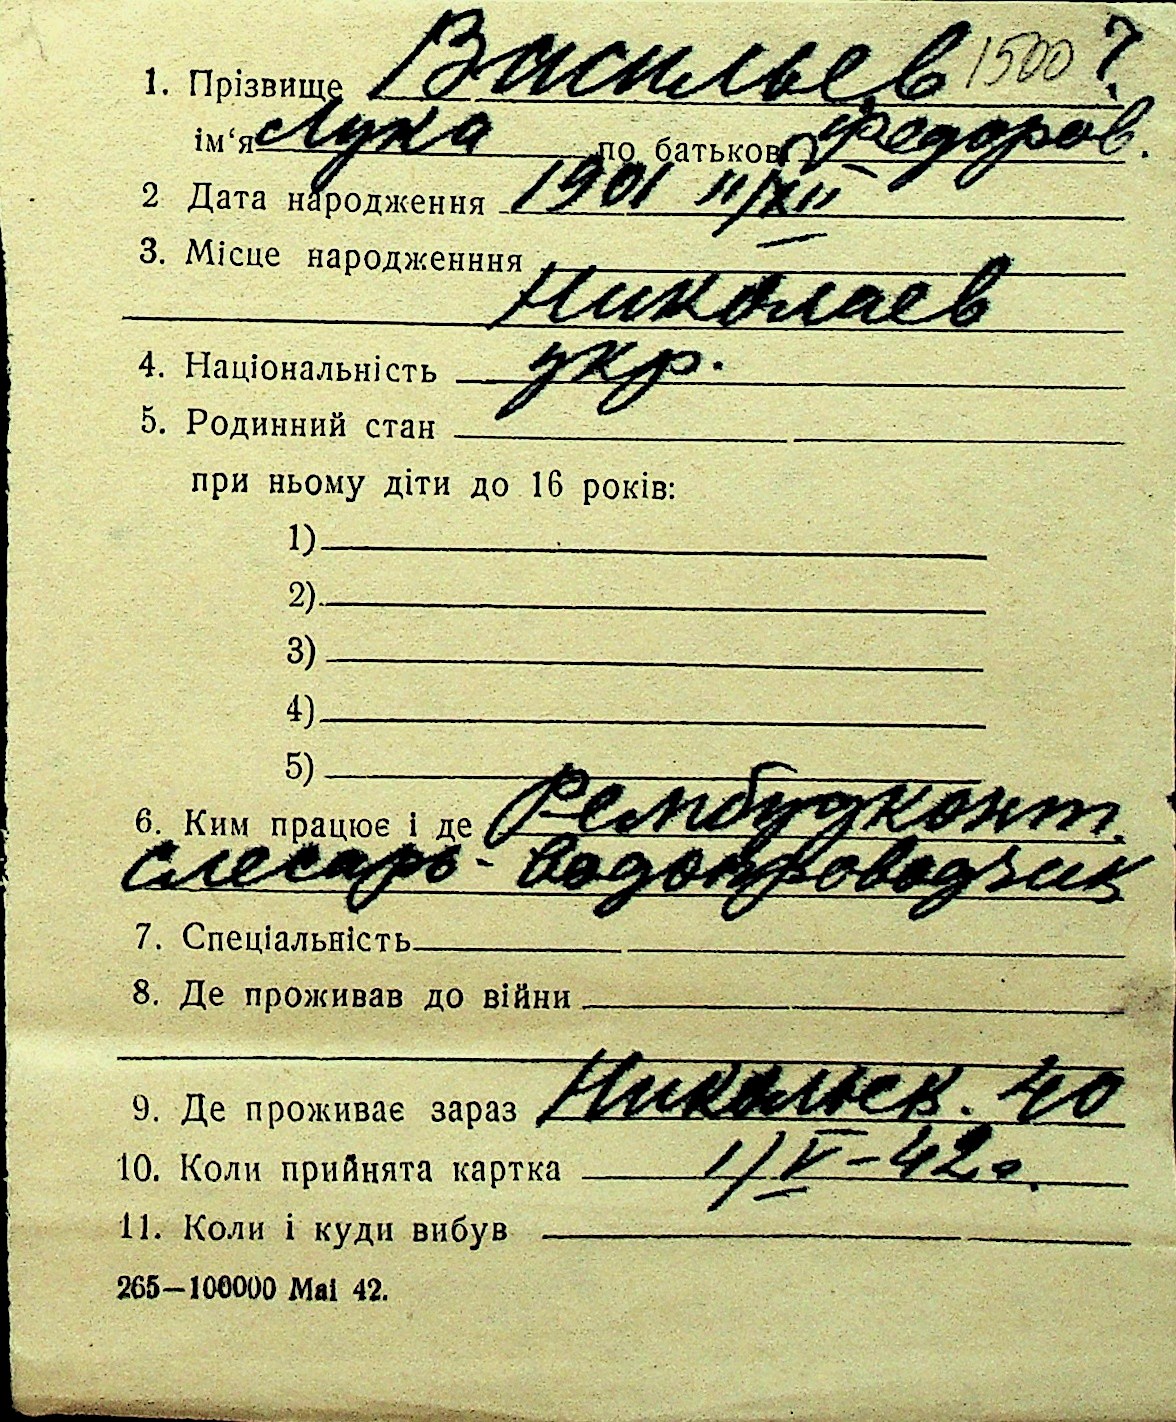 1. Прізвище Васильев 1500 ?
ім‘я Лука по батькові Федоров.
2 Дата народження 1901 "/XII
3. Місце народженння
Николаев
4. Національність укр.
5. Родинний стан
при ньому діти до 16 років:
1)
2)
3)
4)
5)
6. Ким працює і де Рембудконт.
слесарь-водопроводчик
7. Спеціальність
8. Де проживав до війни
9. Де проживає зараз Николаев. 40
10. Коли прийнята картка 1/V-42г.
11. Коли і куди вибув
265—100000 Mai 42.